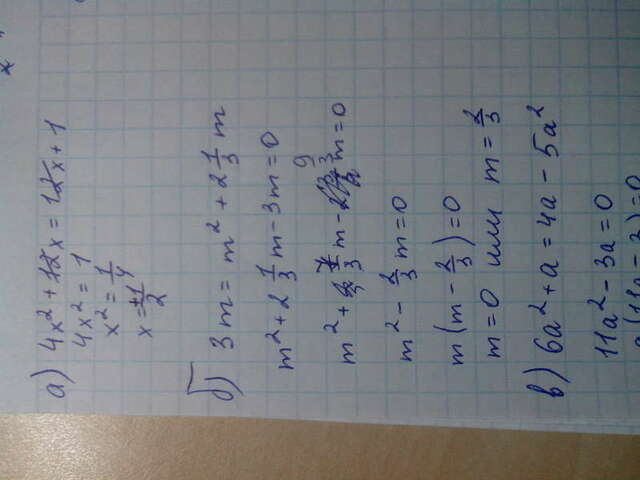 а) 4x² + 12x = 12x + 1
4x² = 1
x² = 1/4
x = ±1/2
б) 3m = m² + 2 1/3 m
m² + 2 1/3 m - 3m = 0
m² - 2/3 m = 0
m(m - 2/3) = 0
m = 0 или m = 2/3
в) 6a² + a = 4a - 5a²
11a² - 3a = 0